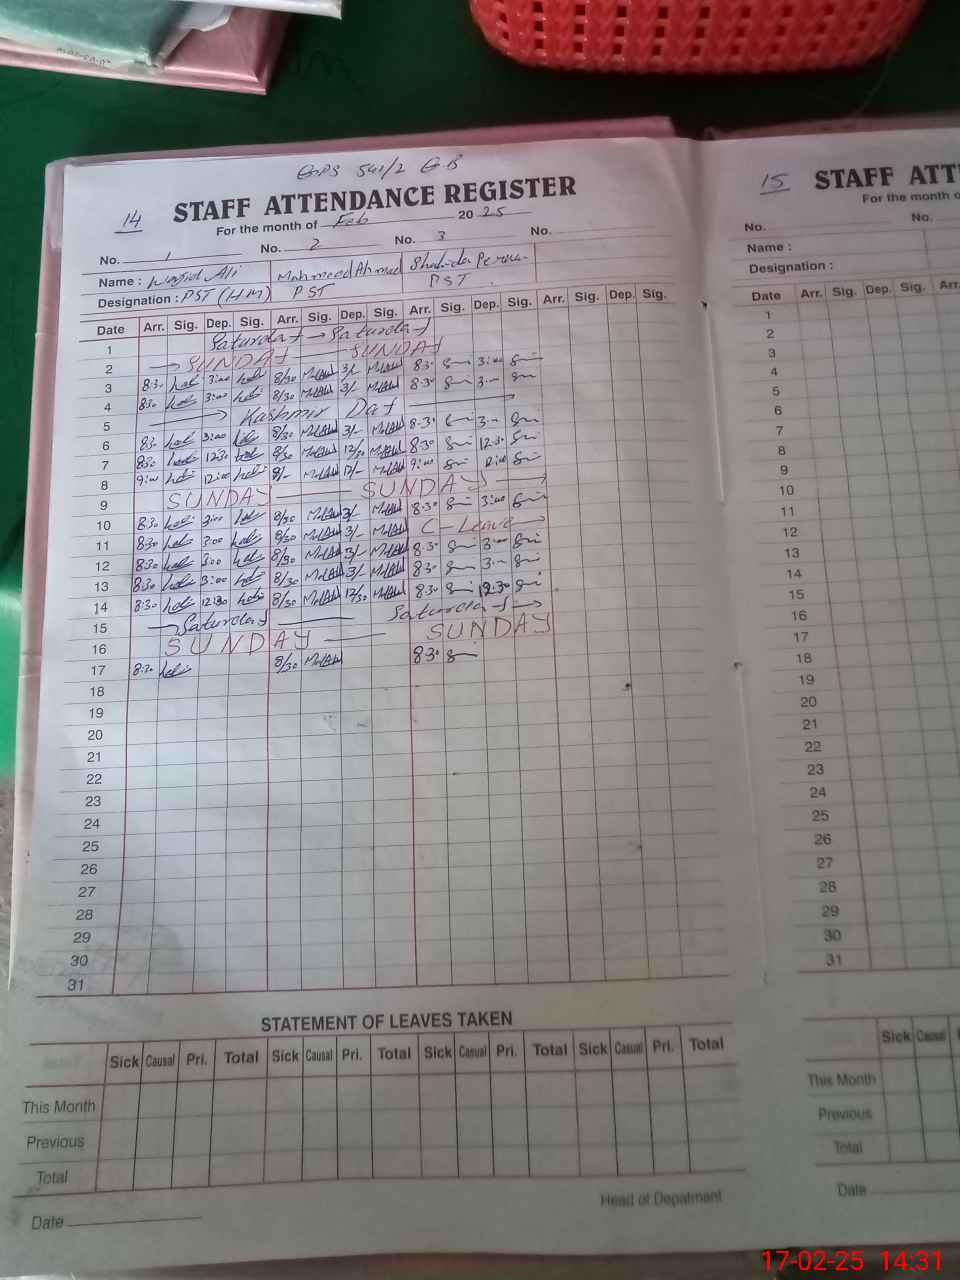 GPS 541/2 G.B
14
STAFF ATTENDANCE REGISTER
For the month of Feb 2025
No. 1 No. 2 No. 3 No.
Name : Wajid Ali Mahmood Ahmad Shahida
Designation : PST (HM) PST PST
Date Arr. Sig. Dep. Sig. Arr. Sig. Dep. Sig. Arr. Sig. Dep. Sig. Arr. Sig. Dep. Sig.
1 Saturday Saturday
2 SUNDAY SUNDAY
3 8:30 3:00 8/30 3/- 8:30 3:00
4 8:30 3:00 8/30 3/- 8:30 3:--
5 Kashmir Day
6 8:30 3:00 8/30 3/- 8:30 3:--
7 8:30 12:30 8/30 12/30 8:30 12:30
8 9:00 12:00 9/- 12/- 9:00 12:00
9 SUNDAY SUNDAY
10 8:30 3:00 8/30 3/- 8:30 3:00
11 8:30 3:00 8/30 3/- C-Leave
12 8:30 3:00 8/30 3/- 8:30 3:00
13 8:30 3:00 8/30 3/- 8:30 3:--
14 8:30 12:30 8/30 12/30 8:30 12:30
15 Saturday Saturday
16 SUNDAY SUNDAY
17 8:30 8/30 8:30
18
19
20
21
22
23
24
25
26
27
28
29
30
31
STATEMENT OF LEAVES TAKEN
Sick Causal Pri. Total Sick Causal Pri. Total Sick Casual Pri. Total Sick Casual Pri. Total
This Month
Previous
Total
Date
Head of Depatment
15
STAFF ATT
For the month o
No. No.
Name :
Designation :
Date Arr. Sig. Dep. Sig. Arr.
1
2
3
4
5
6
7
8
9
10
11
12
13
14
15
16
17
18
19
20
21
22
23
24
25
26
27
28
29
30
31
Sick Causal
This Month
Previous
Total
Date
17-02-25 14:31